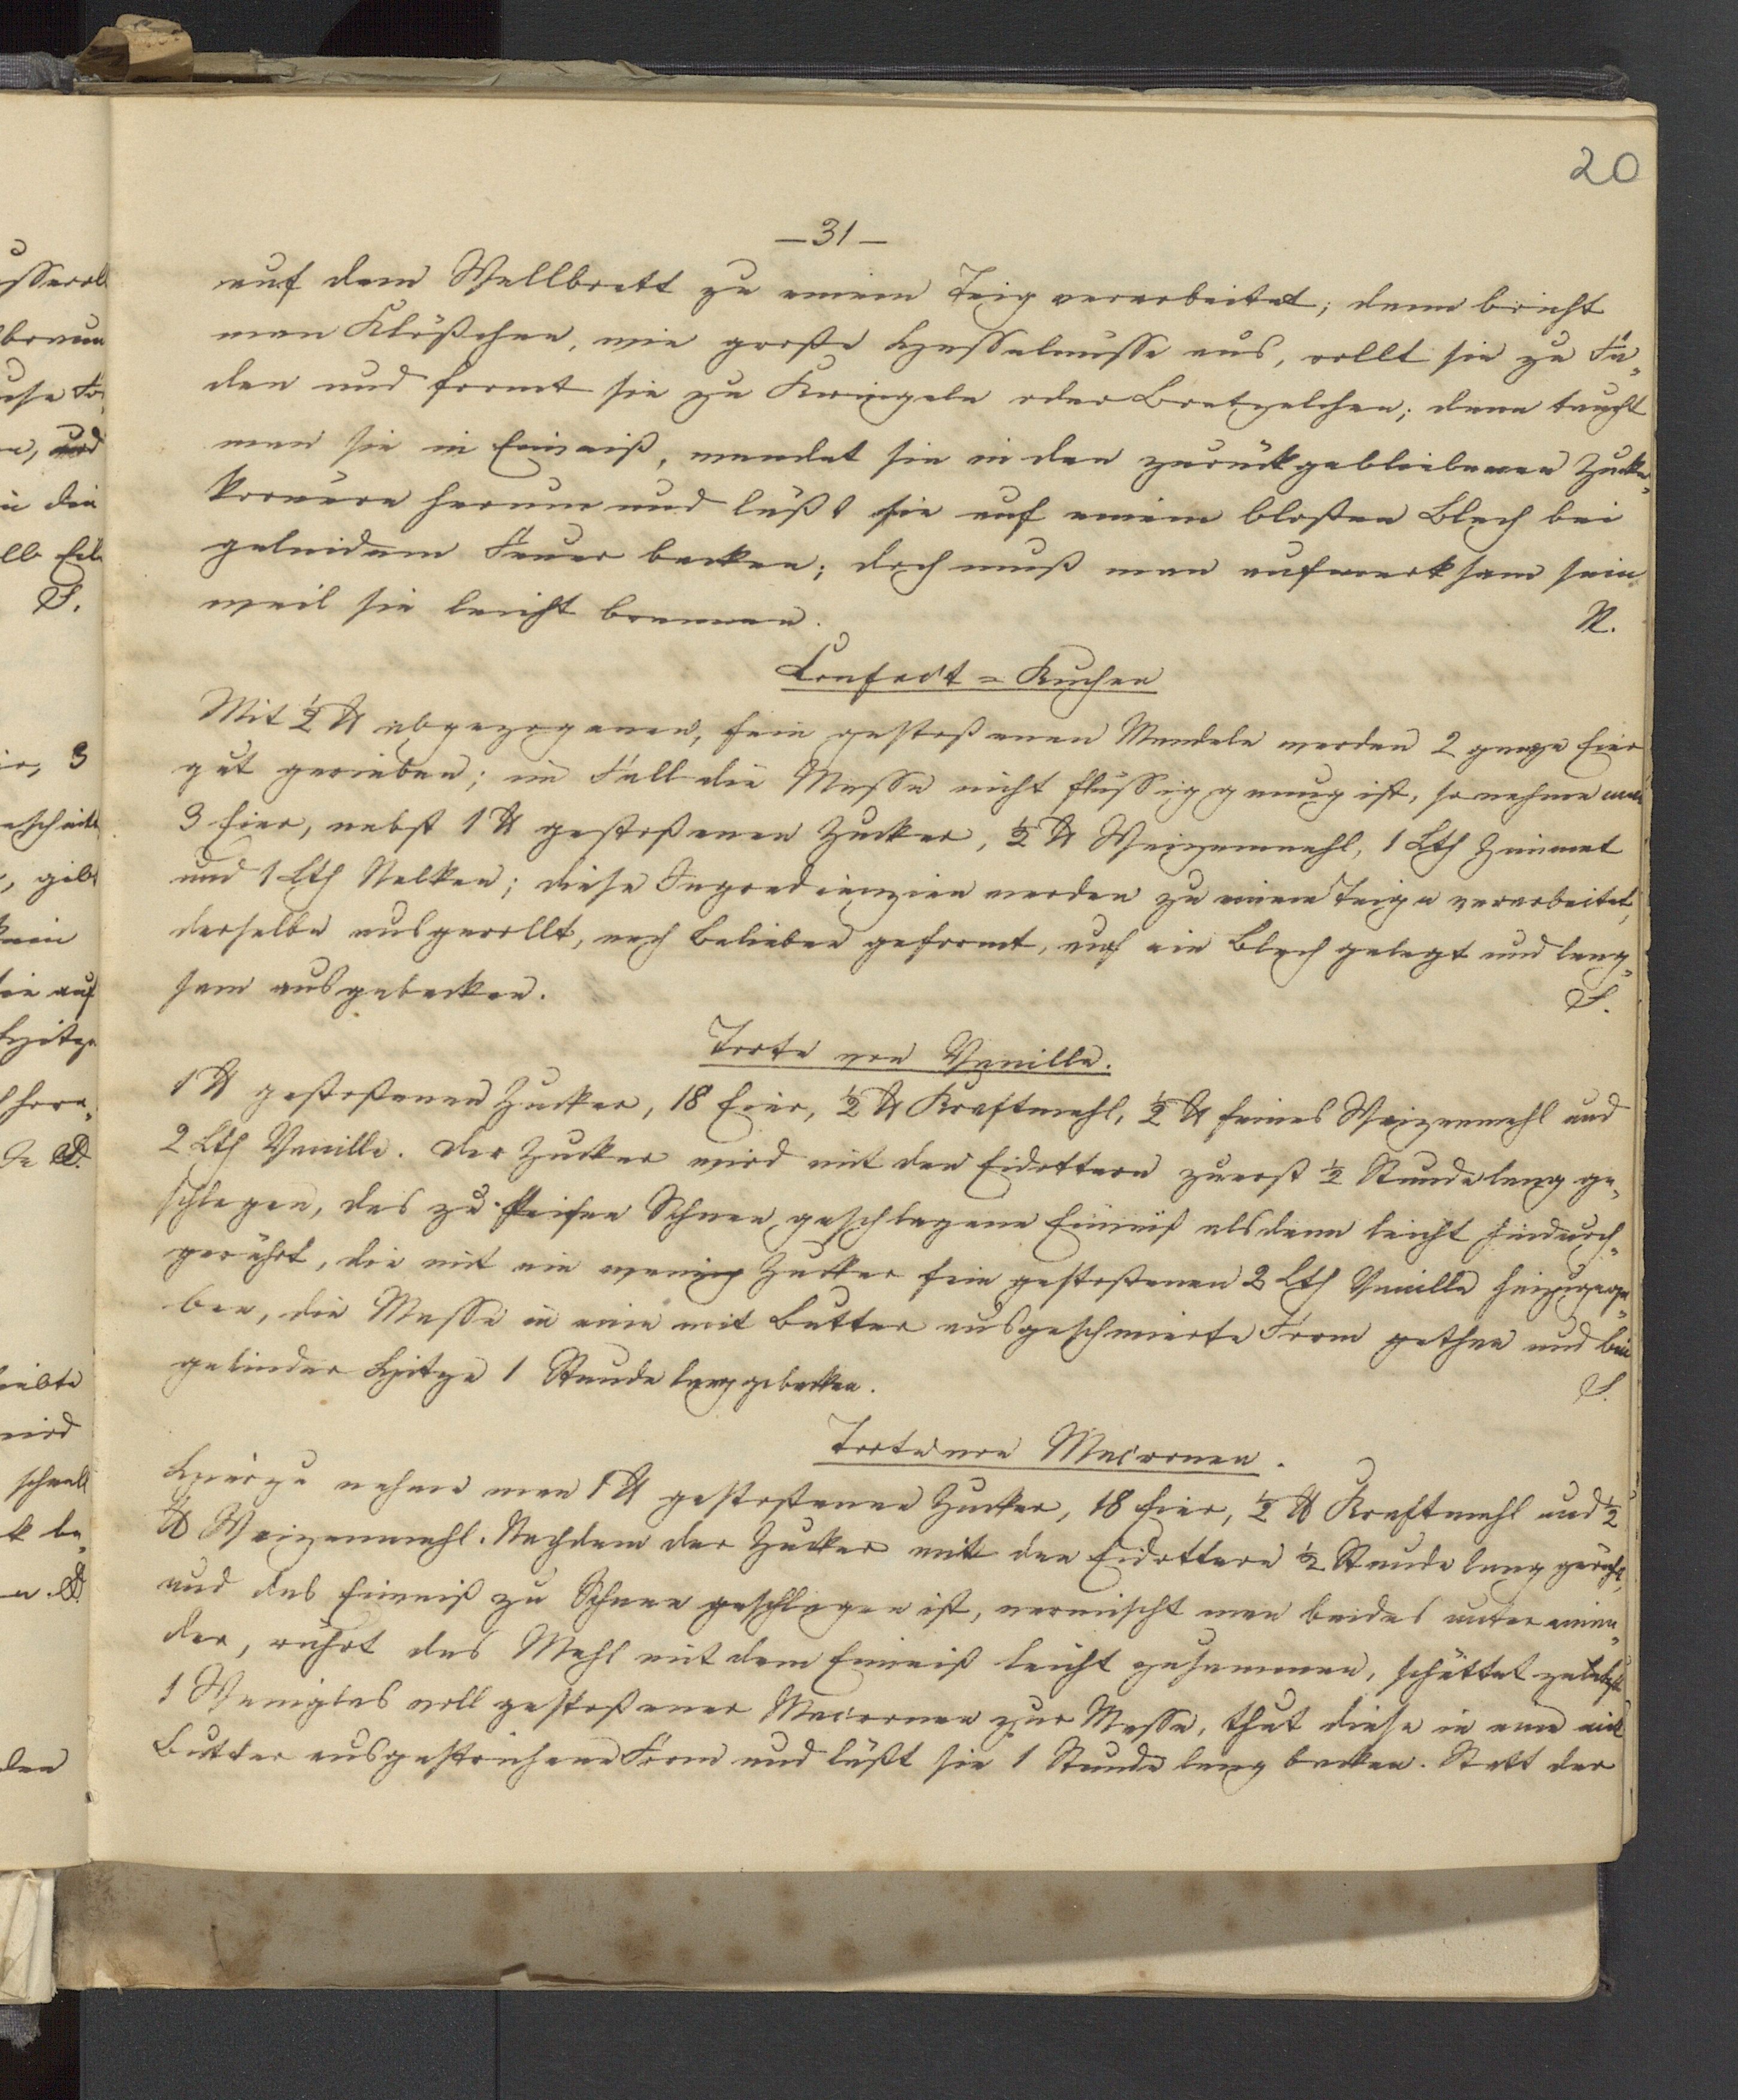 20
— 31 —
auf dem Wellbrett zu einem Teig verarbeitet; dann bricht
man Klößchen, wie große Haselnüsse aus, rollt sie zu Fä-
den und formt sie zu Kringeln oder Bretzelchen; dann taucht
man sie in Eiweiß, wendet sie in den zurückgebliebenen Zucker-
körnern herum und läßt sie auf einem bloßen Blech bei
gelindem Feuer backen; doch muß man aufmerksam sein
weil sie leicht brennen. N.
Confect = Kuchen
Mit ½ ℔ abgezogenen, fein gestoßenen Mandeln werden 2 ganze Eier
gut gerieben; im Fall die Masse nicht flüssig genug ist, so nehme man
3 Eier, nebst 1 ℔ gestoßenen Zucker, ½ ℔ Weizenmehl, 1 Lth Zimmet
und 1 Lth Nelken; diese Ingredienzien werden zu einem Teige verarbeitet,
derselbe ausgerollt, nach Belieben geformt, auf ein Blech gelegt und lang-
sam ausgebacken. S.
Torte von Vanille.
1 ℔ gestoßenen Zucker, 18 Eier, ½ ℔ Kraftmehl, ½ ℔ feines Weizenmehl und
2 Lth Vanille. Der Zucker wird mit den Eidottern zuerst ½ Stunde lang ge-
schlagen, das zu steifen Schnee geschlagene Eiweiß alsdann leicht hindurch-
gerührt, die mit ein wenig Zucker fein gestoßenen 2 Lth Vanille hinzugege-
ben, die Masse in eine mit Butter ausgeschmierte Form gethan und bei
gelinder Hitze 1 Stunde lang gebacken. S.
Torte von Macronen.
Hierzu nehme man 1 ℔ gestoßenen Zucker, 18 Eier, ½ ℔ Kraftmehl und ½
℔ Weizenmehl. Nachdem der Zucker mit den Eidottern ½ Stunde lang gerührt,
und das Eiweiß zu Schnee geschlagen ist, vermischt man beides unter einan-
der, rührt das Mehl mit dem Eiweiß leicht zusammen, schüttet zuletzt
1 Weinglas voll gestoßener Macronen zur Masse, thut diese in eine mit
Butter ausgestrichene Form und läßt sie 1 Stunde lang backen. Statt der